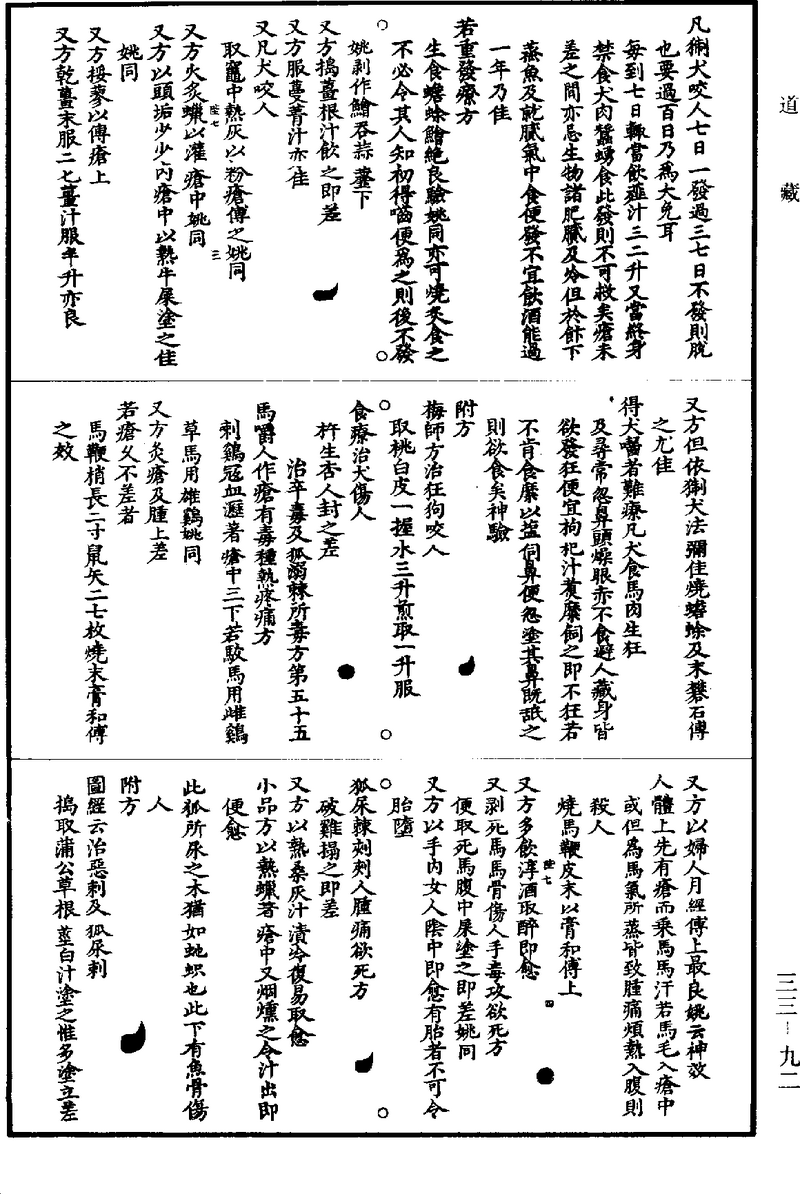 道藏
凡猘犬咬人七日一發過三七日不發則脫
也要過百日乃爲大免耳
每到七日輒當飲薤汁三二升又當終身
禁食犬肉蠶蛹食此發則不可救矣瘡未
差之間亦忌生物諸肥膩及冷但於飰下
蒸魚及就膩氣中食便發不宜飲酒能過
一年乃佳
若重發療方
生食蟾蜍鱠絶良驗姚同亦可燒炙食之
不必令其人知初得嚙便爲之則後不發
姚剥作鱠吞蒜虀下
又方搗薑根汁飲之即差
又方服蔓菁汁亦佳
又凡犬咬人
取竈中熱灰以粉瘡傅之姚同
又方火炙蠟以灌瘡中姚同
又方以頭垢少少内瘡中以熱牛屎塗之佳
姚同
又方挼蓼以傅瘡上
又方乾薑末服二七薑汁服半升亦良
又方但依猘犬法彌佳燒蟾蜍及末礬石傅
之尤佳
得犬嚙者難療凡犬食馬肉生狂
及尋常忽鼻頭燥眼赤不食避人藏身皆
欲發狂便宜枸杞汁煑糜飼之即不狂若
不肯食糜以鹽伺鼻便忽塗其鼻既舐之
則欲食矣神驗
附方
梅師方治狂狗咬人
取桃白皮一握水三升煎取一升服
食療治犬傷人
杵生杏人封之差
治卒毒及狐溺棘所毒方第五十五
馬嚼人作瘡有毒種熱疼痛方
刺鷄冠血瀝著瘡中三下若駮馬用雌鷄
草馬用雄鷄姚同
又方灸瘡及腫上差
若瘡久不差者
馬鞭梢長二寸鼠矢二七枚燒末膏和傅
之效
又方以婦人月經傅上最良姚云神效
人體上先有瘡而乘馬馬汗若馬毛入瘡中
或但爲馬氣所蒸皆致腫痛煩熱入腹則
殺人
燒馬鞭皮末以膏和傅上
又方多飲淳酒取醉即愈
又剥死馬馬骨傷人手毒攻欲死方
便取死馬腹中屎塗之即差姚同
又方以手内女人陰中即愈有胎者不可令
胎墮
狐尿棘刺刾人腫痛欲死方
破雞搨之即差
又方以熱桑灰汁漬冷復易取愈
小品方以熱蠟著瘡中又烟燻之令汁出即
便愈
此狐所尿之木猶如虵蜮也此下有魚骨傷
人
附方
圖經云治惡刺及狐尿刺
搗取蒲公草根莖白汁塗之惟多塗立差
三三-九二